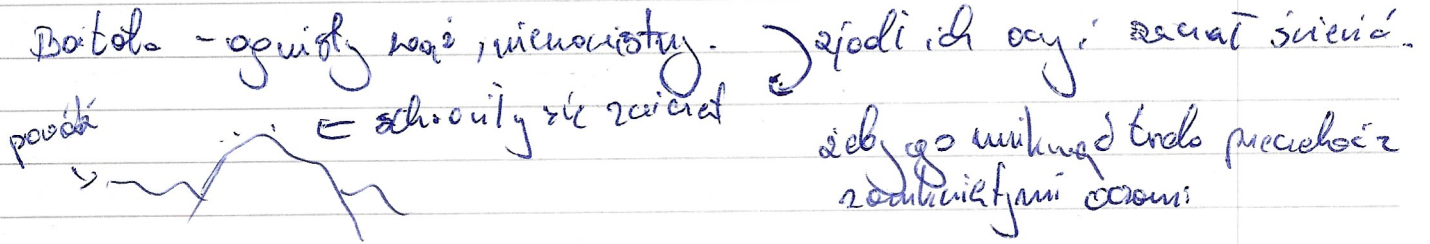 Batola - ognisty wąż, nienawistny.
zjadł ich oczy i zaczął świecić.
powódź
schroniły się zwierzęta
żeby go uniknąć trzeba przeczekać z
zamkniętymi oczami